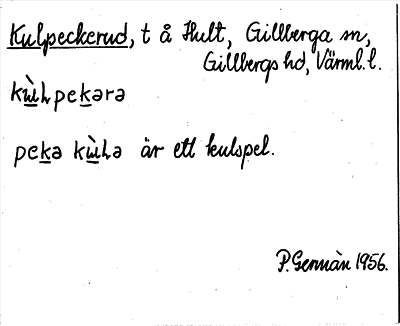 Kulpeckerud, t å Hult, Gillberga sn,
Gillbergs hd, Värml. l.
kùlpekərə
pekə kùlə är ett kulspel.
P. Gennàn 1956.